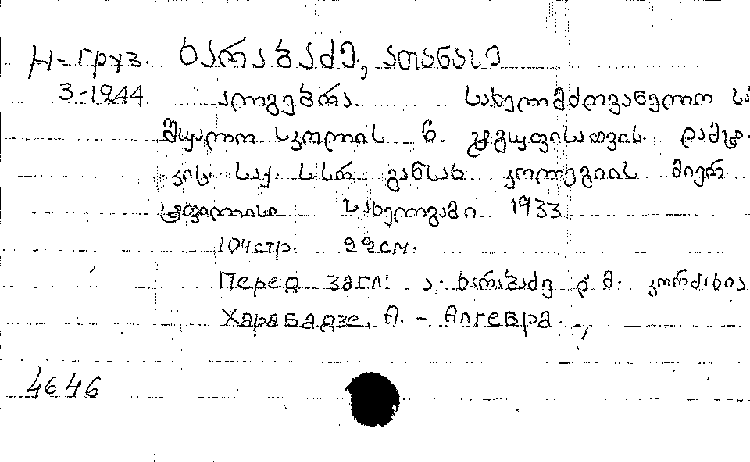 Н-Груз. ხარაბაძე, ათანასე
3-1944 ალგებრა. სახელმძღვანელო სა
შუალო სკოლის 6. ჯგუფისათვის. დამტ.
კიც. საქ. სსრ. განსახ. კოლეგიის მიერ
ტფილისი სახელგამი 1933
104 стр. 22 см.
Перед загл: ა. ხარაბაძე დ მ. კორძახია
Харабадзе, А. - Алгебра.
4646